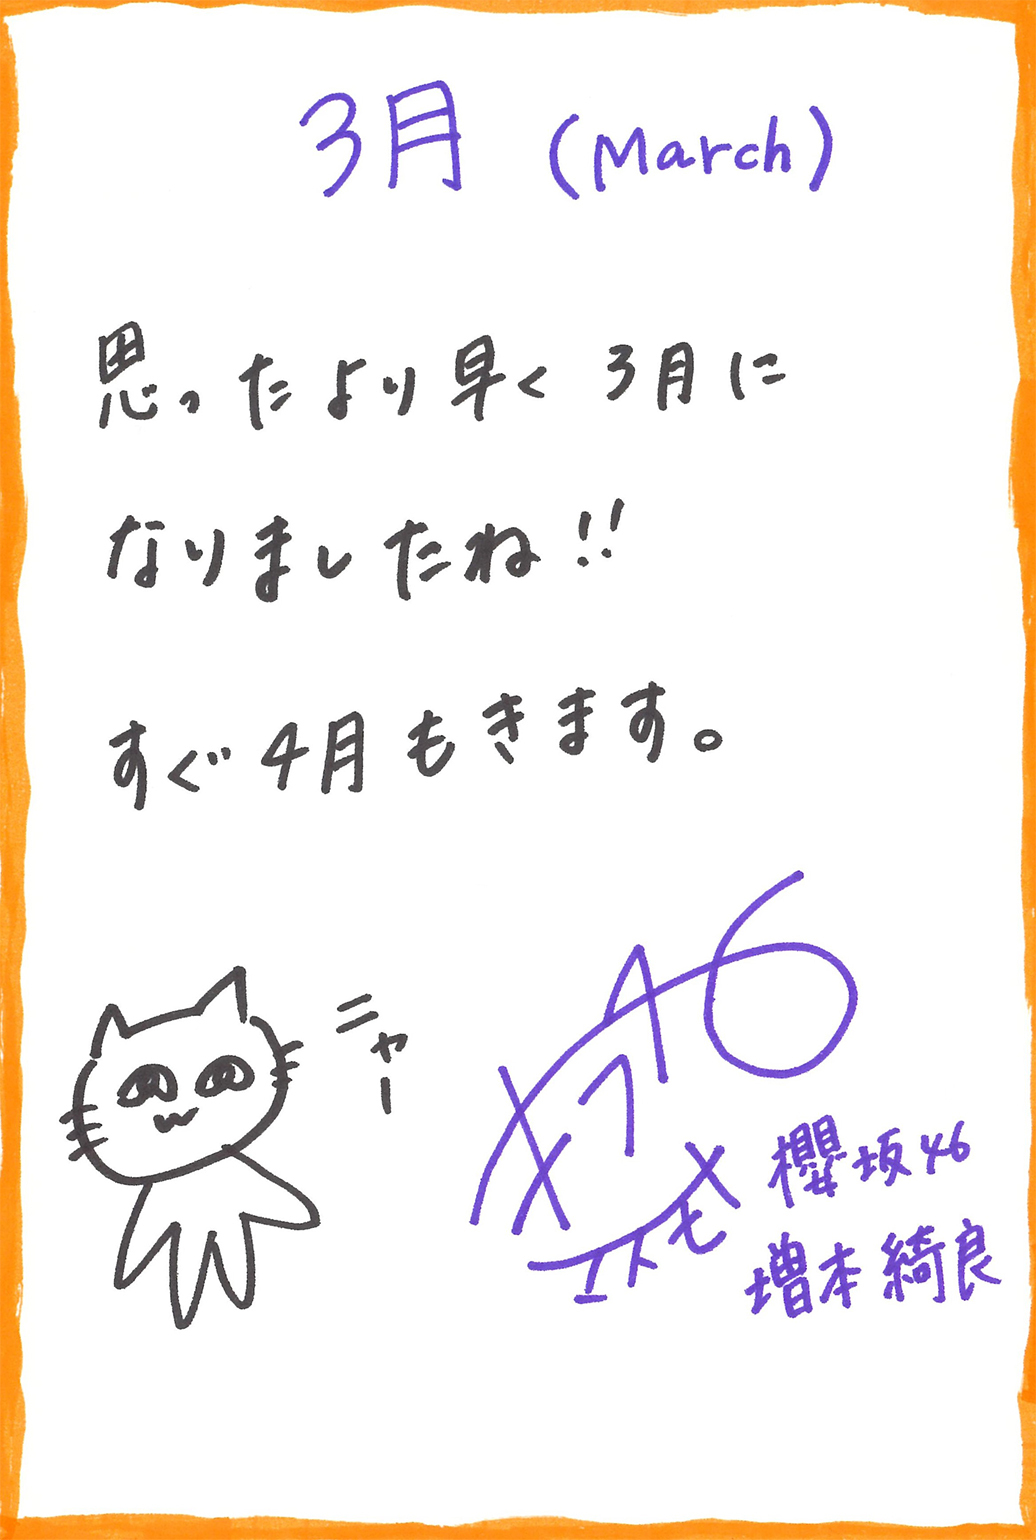 3月 (March)
思ったより早く 3月に
なりましたね!!
すぐ4月もきます。
ニャー
櫻坂46
増本綺良